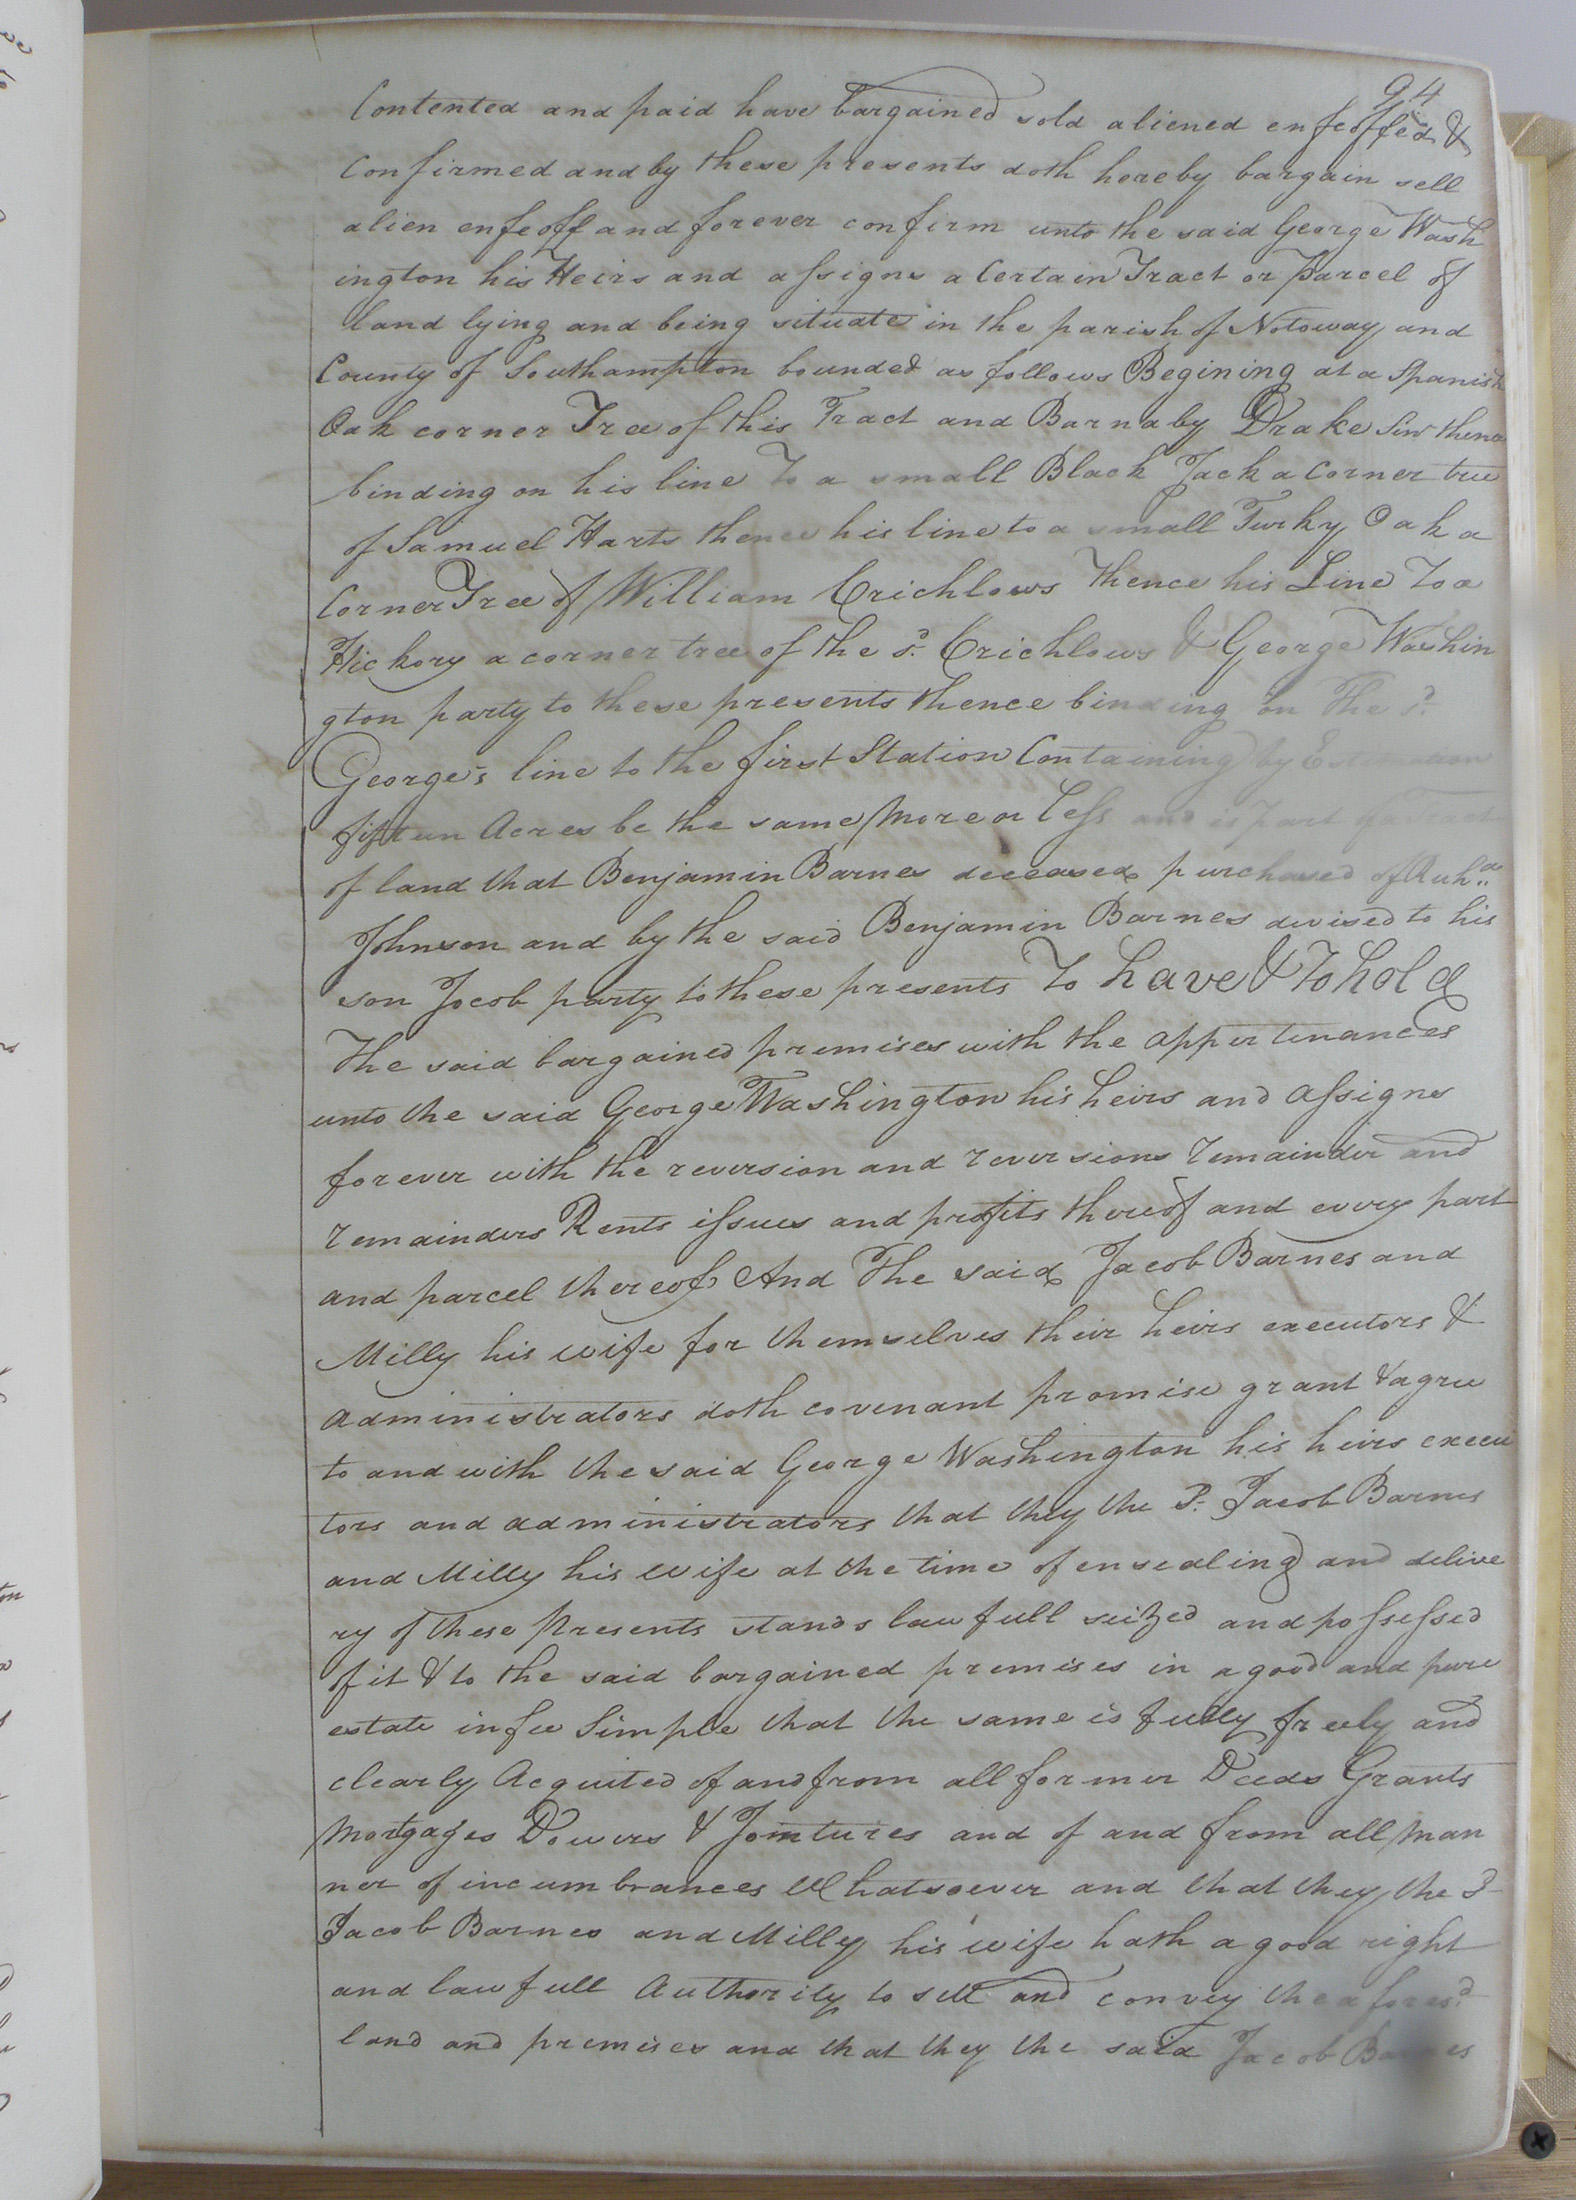 94
Contented and paid have bargained sold aliened enfeoffed &
Confirmed and by these presents doth hereby bargain sell
alien enfeoff and forever confirm unto the said George Wash
ington his Heirs and assigns a Certain Tract or Parcel of
land lying and being situate in the parish of Notoway and
County of Southampton bounded as follows Begining at a Spanish
Oak corner Tree of this Tract and Barnaby Drake Sinr thence
binding on his line To a small Black Jack a Corner tree
of Samuel Harts thence his line to a small Turky Oak a
Corner Tree of William Crichlows thence his Line To a
Hickory a corner tree of the sd. Crichlows & George Washin
gton party to these presents thence binding on The sd.
George's line to the first Station Containing by Estimation
fifteen Acres be the same More or Less and is part of a Tract
of land that Benjamin Barnes deceased purchased of
Johnson and by the said Benjamin Barnes devised to his
son Jacob party to these presents To have & To hold
The said bargained premises with the appertenances
unto the said George Washington his heirs and assigns
forever with the reversion and reversions remainder and
remainders Rents issues and profits thereof and every part
and parcel thereof And The said Jacob Barnes and
Milly his wife for themselves their heirs executors &
administrators doth covenant promise grant & agree
to and with the said George Washington his heirs execu
tors and administrators that they the Sd. Jacob Barnes
and Milly his wife at the time of ensealing and delive
ry of these Presents stands lawfull seized and possessed
of it & to the said bargained premises in a good and pure
estate in fee Simple that the same is fully freely and
clearly Acquited of and from all former Deeds Grants
Mortgages Dowers & Jointures and of and from all Man
ner of incumbrances Whatsoever and that they the Sd
Jacob Barnes and Milly his wife hath a good right
and lawfull Authority to sell and convey the aforesd.
land and premises and that they the said Jacob Barnes